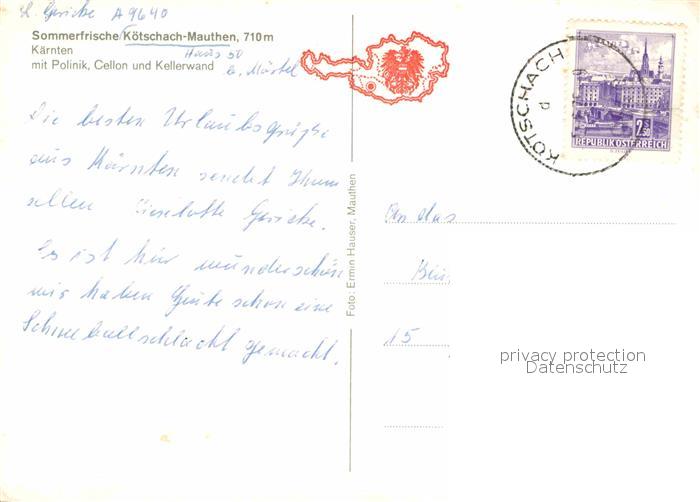 L. Gericke A 9640
Sommerfrische Kötschach-Mauthen, 710 m
Kärnten Haus 50
mit Polinik, Cellon und Kellerwand
b. Märtel
Die besten Urlaubsgrüße
aus Kärnten sendet Ihnen
allen Lieselotte Gericke.
Es ist hier wunderschön
wir haben heute schon eine
Schneeballschlacht gemacht.
Foto: Ermin Hauser, Mauthen
KÖTSCHACH
2.50
REPUBLIK ÖSTERREICH
An das
15
privacy protection
Datenschutz